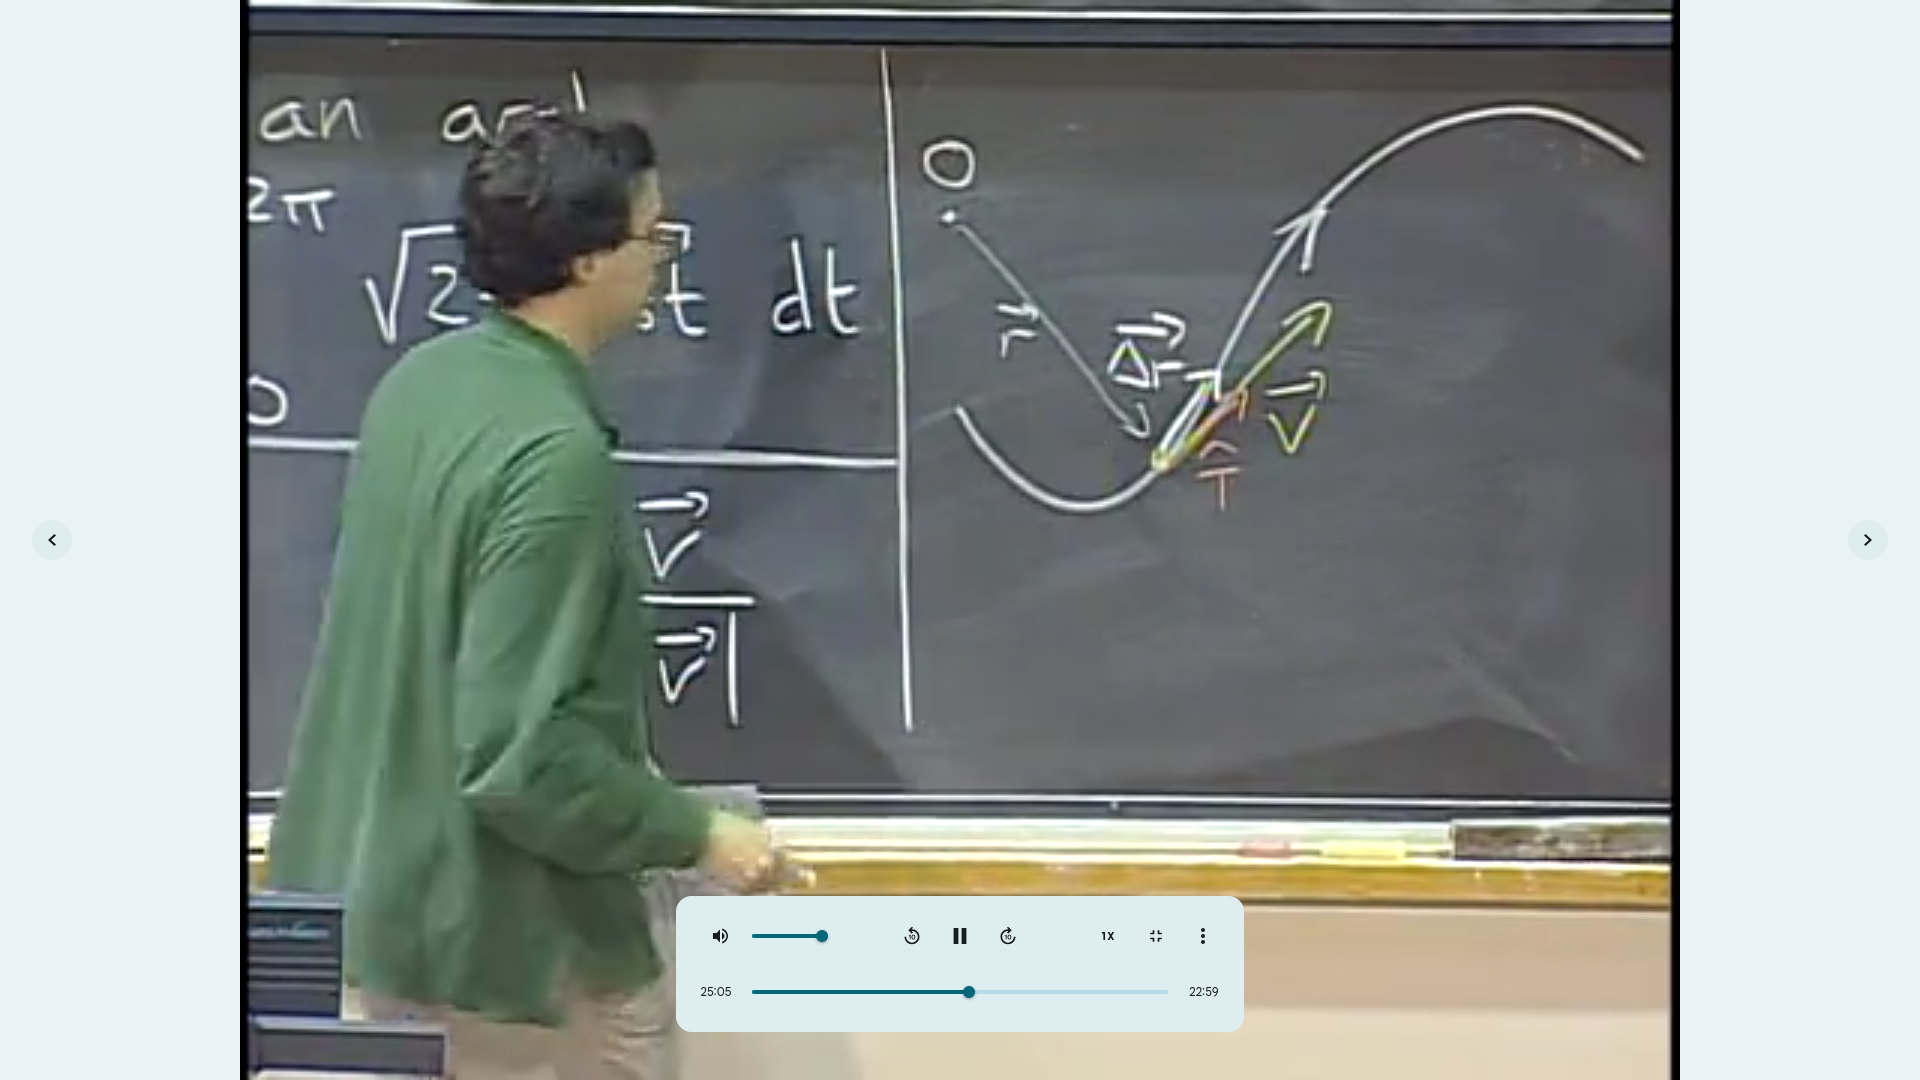 an
2π
√2 t dt
0
v⃗
v⃗|
O
r⃗
Δr⃗
v⃗
T̂
1X
25:05
22:59